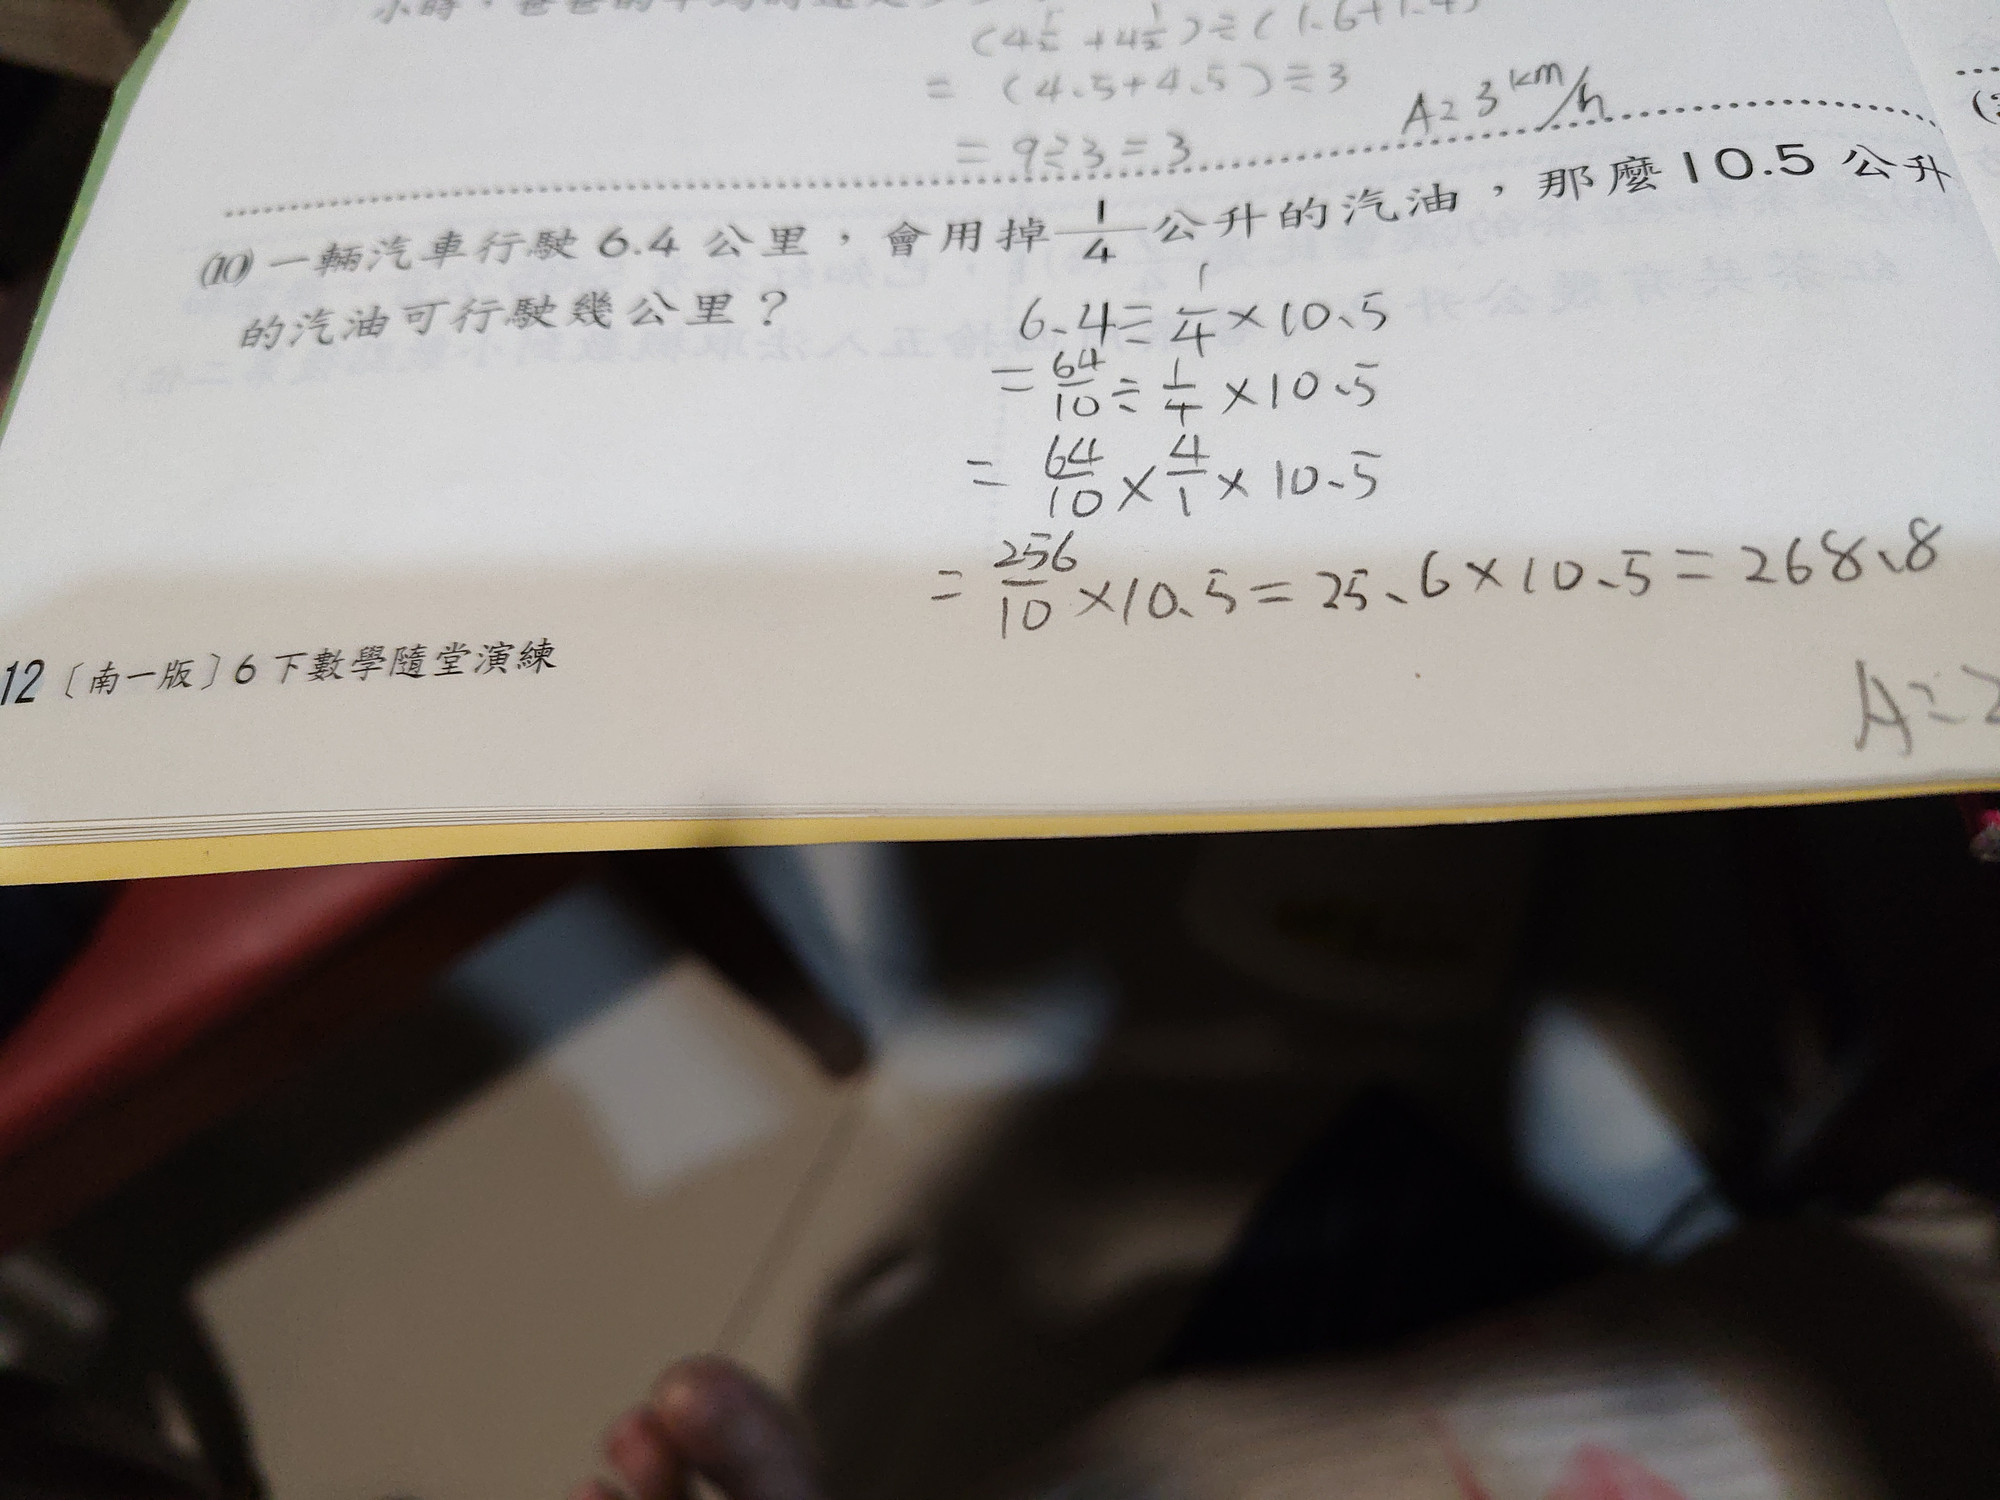 (4½ + 4½) ÷ (1.6+1.4)
= (4.5+4.5) ÷ 3
= 9÷3 = 3
A= 3 km/h
⑽ 一輛汽車行駛 6.4 公里，會用掉 1/4 公升的汽油，那麼 10.5 公升
的汽油可行駛幾公里？
6.4 ÷ 1/4 × 10.5
= 64/10 ÷ 1/4 × 10.5
= 64/10 × 4/1 × 10.5
= 256/10 × 10.5 = 25.6 × 10.5 = 268.8
A=2
12〔南一版〕6 下數學隨堂演練